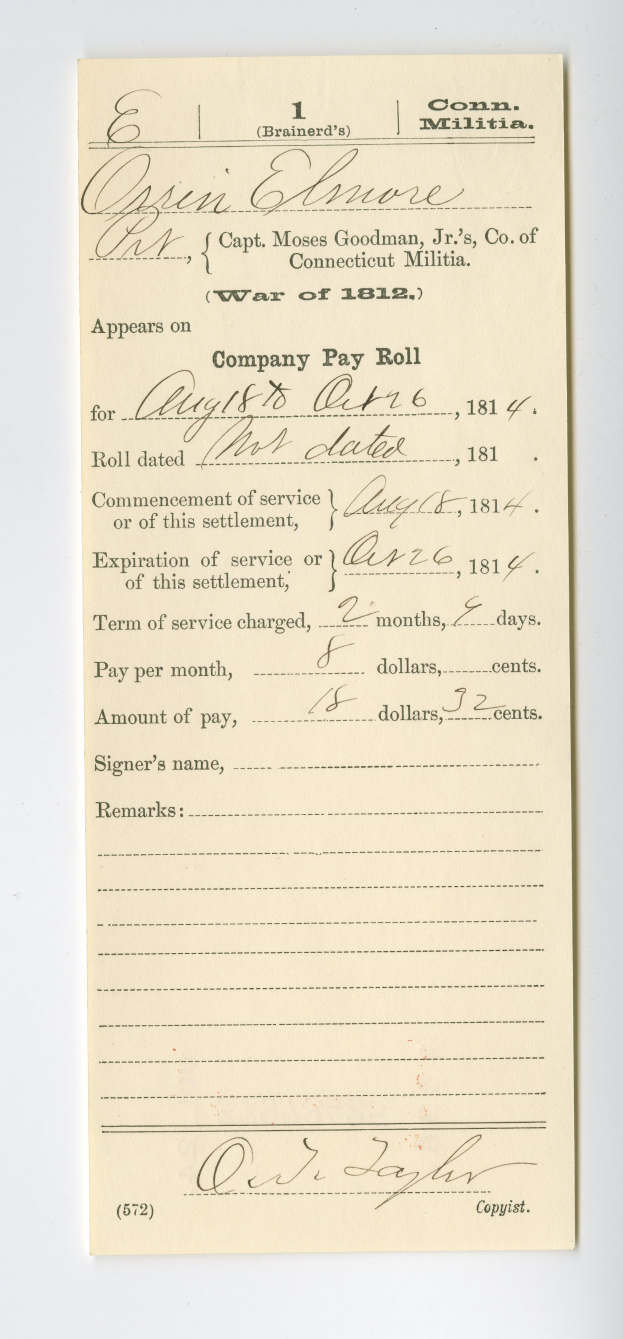 E 1 Conn.
(Brainerd's) Militia.
Orrin Elmore
Pvt, { Capt. Moses Goodman, Jr.'s, Co. of
Connecticut Militia.
(War of 1812.)
Appears on
Company Pay Roll
for Aug 18 to Oct 26, 1814.
Roll dated Not dated, 181 .
Commencement of service
or of this settlement, } Aug 18, 1814.
Expiration of service or
of this settlement, } Oct 26, 1814.
Term of service charged, 2 months, 9 days.
Pay per month, 8 dollars, cents.
Amount of pay, 18 dollars, 32 cents.
Signer's name,
Remarks:
Taylor
(572) Copyist.